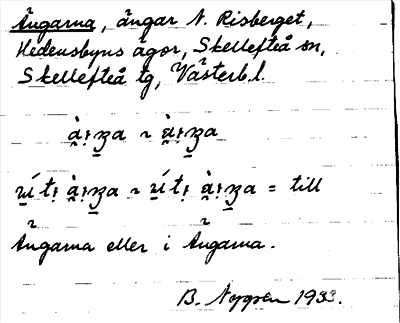 Ängarna, ängar N. Risberget,
Hedensbyns ägor, Skellefteå sn,
Skellefteå tg, Västerb.l.
= till
Ängarna eller i Ängarna.
B. Nygren 1933.